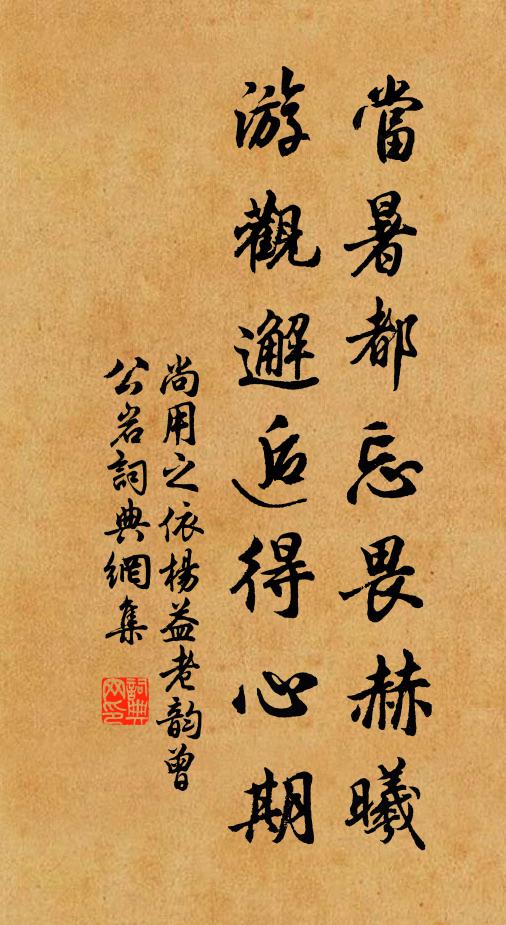 當暑都忘畏赫曦
游觀邂逅得心期
尚用之依楊益老韵曾
公岩詞典網集
詞典
网印